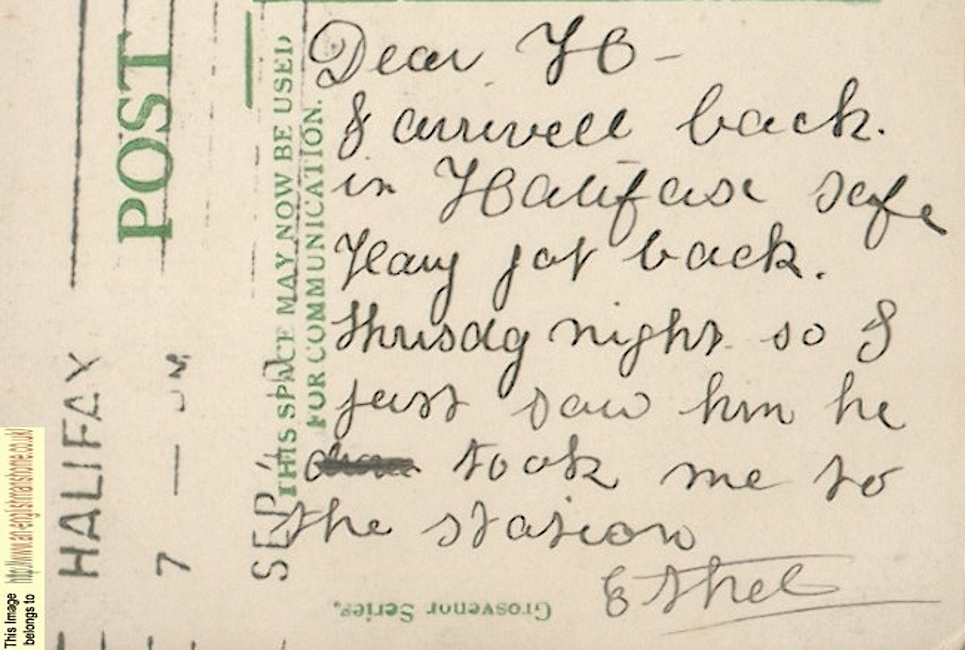 Dear H -
I arrivell back.
in Halifase safe
Hary got back.
thrisdg night so I
just saw him he
took me to
the station
Ethel
POST
THIS SPACE MAY NOW BE USED
FOR COMMUNICATION.
HALIFAX
7
SEP
Grosvenor Series.
This Image
belongs to http://www.anenglishmanshome.co.uk/